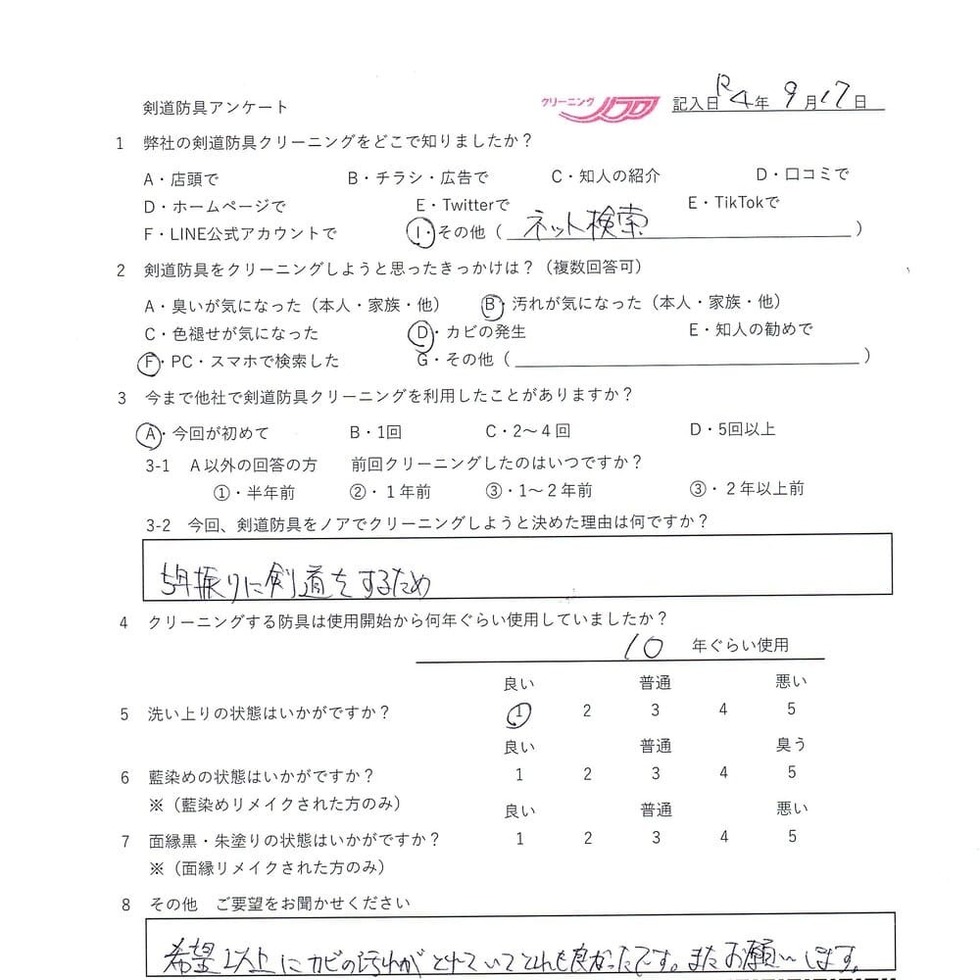 剣道防具アンケート
クリーニング ノア
記入日 R4年 9月17日
1 弊社の剣道防具クリーニングをどこで知りましたか？
A・店頭で B・チラシ・広告で C・知人の紹介 D・口コミで
D・ホームページで E・Twitterで E・TikTokで
F・LINE公式アカウントで I・その他（ネット検索）
2 剣道防具をクリーニングしようと思ったきっかけは？（複数回答可）
A・臭いが気になった（本人・家族・他） B・汚れが気になった（本人・家族・他）
C・色褪せが気になった D・カビの発生 E・知人の勧めで
F・PC・スマホで検索した G・その他（ ）
3 今まで他社で剣道防具クリーニングを利用したことがありますか？
A・今回が初めて B・1回 C・2〜4回 D・5回以上
3-1 A以外の回答の方 前回クリーニングしたのはいつですか？
①・半年前 ②・１年前 ③・1〜２年前 ③・２年以上前
3-2 今回、剣道防具をノアでクリーニングしようと決めた理由は何ですか？
振りに剣道をするため
4 クリーニングする防具は使用開始から何年ぐらい使用していましたか？
10 年ぐらい使用
良い 普通 悪い
5 洗い上りの状態はいかがですか？ 1 2 3 4 5
良い 普通 臭う
6 藍染めの状態はいかがですか？ 1 2 3 4 5
※（藍染めリメイクされた方のみ） 良い 普通 悪い
7 面縁黒・朱塗りの状態はいかがですか？ 1 2 3 4 5
※（面縁リメイクされた方のみ）
8 その他 ご要望をお聞かせください
希望以上にカビの汚れがとれていてとても良かったです。またお願いします。